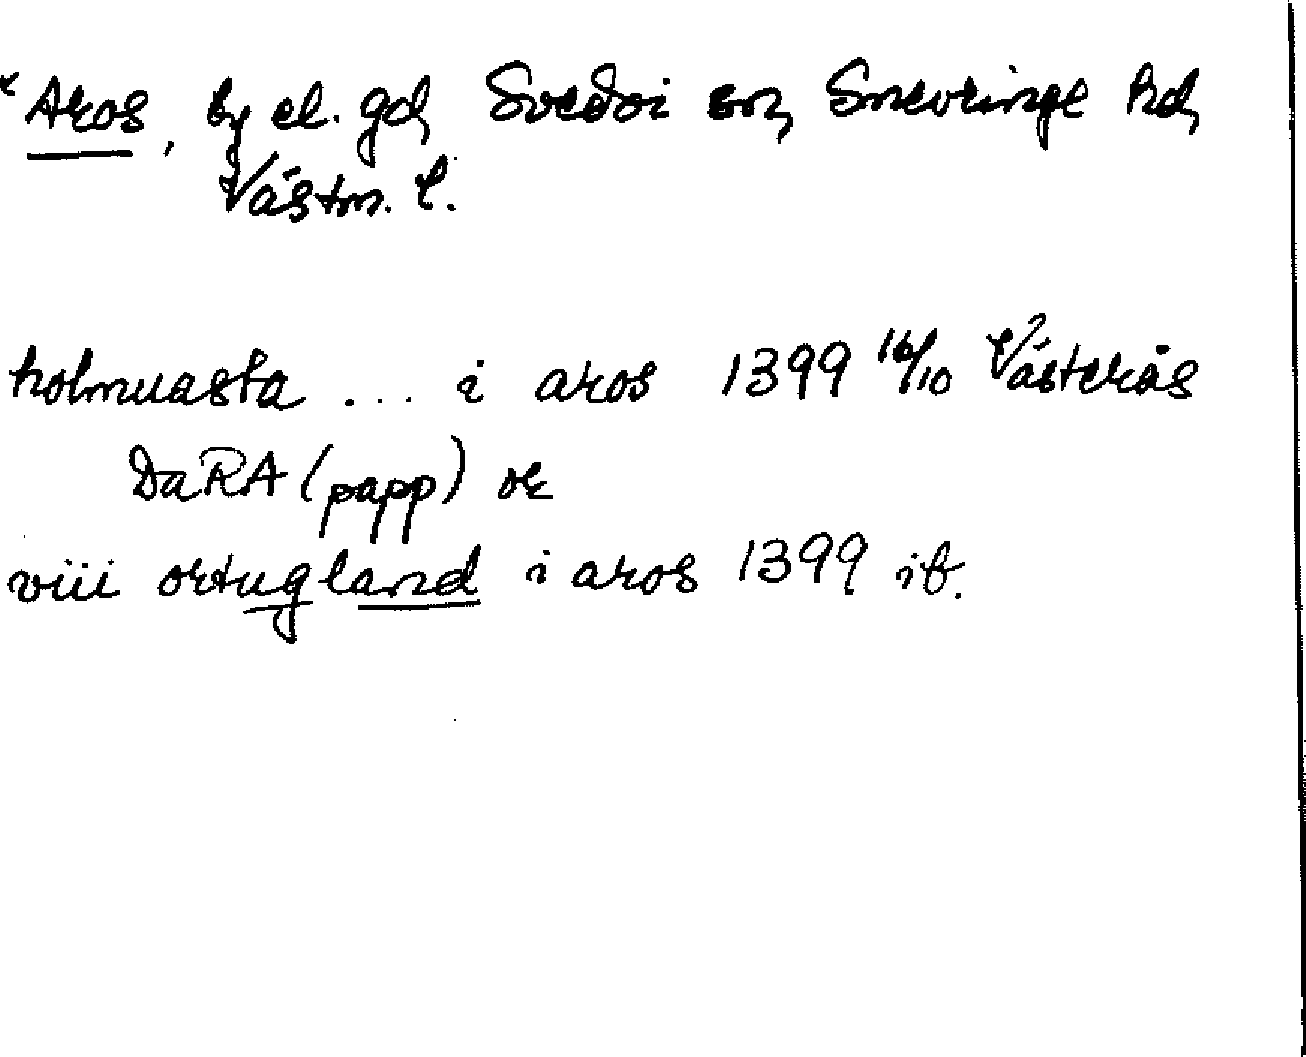 *Aros, by el. gd, Svedvi sn, Snevringe hd,
Västm. l.
holmuasta ... i aros 1399 16/10 Västerås
DaRA (papp) or
viii ortugland i aros 1399 ib.